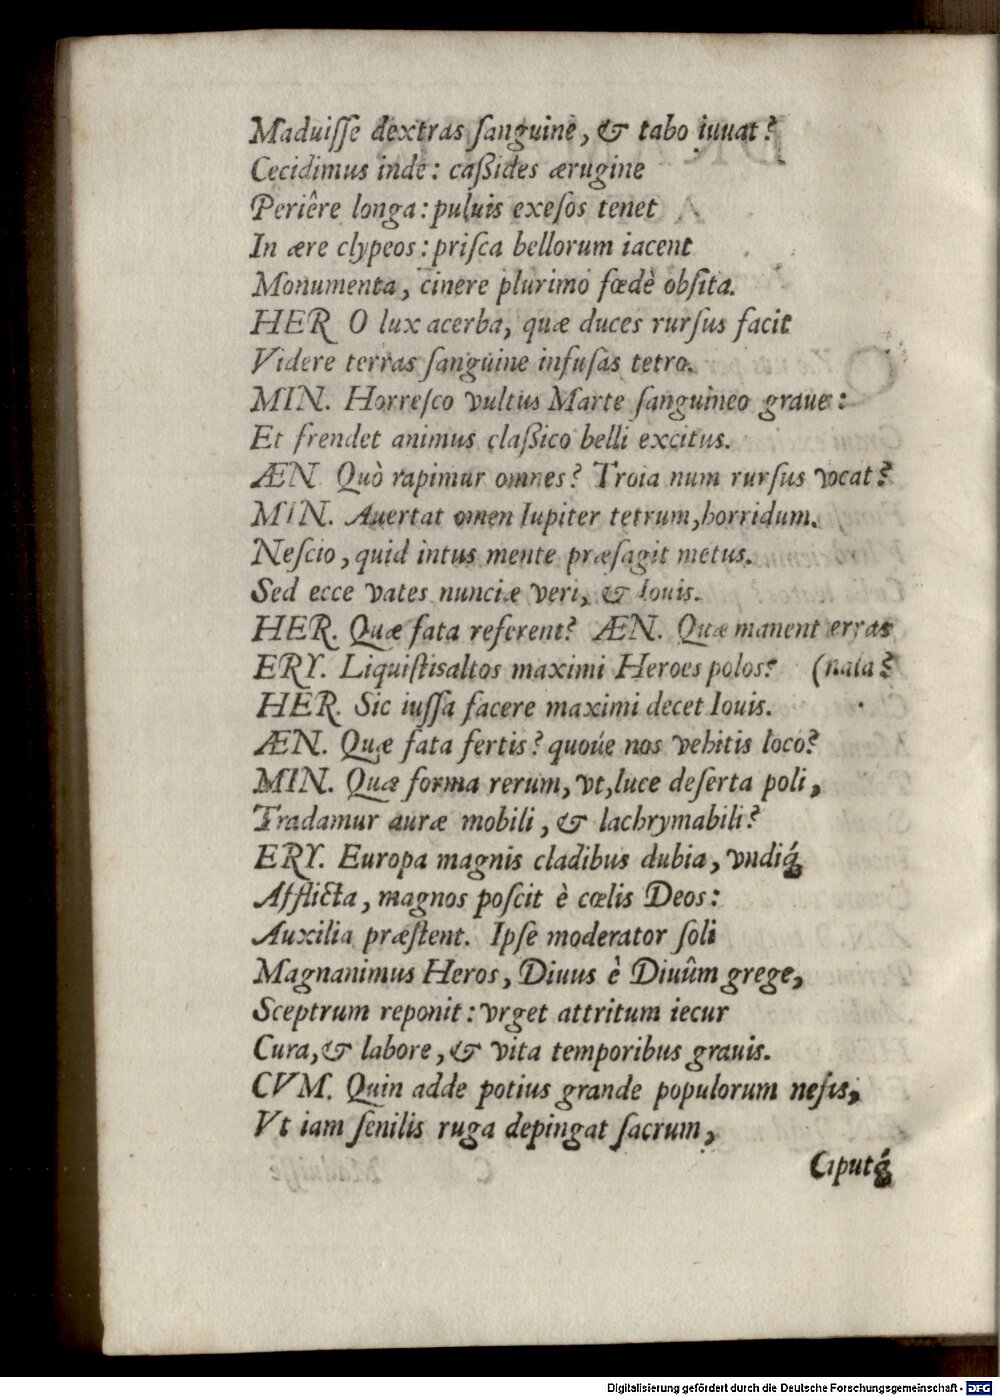 Maduiſſe dextras ſanguine, & tabo iuuat?
Cecidimus inde: caßides ærugine
Periêre longa: puluis exeſos tenet
In ære clypeos: priſca bellorum iacent
Monumenta, cinere plurimo fœdè obſita.
HER. O lux acerba, quæ duces rurſus facit
Videre terras ſanguine infuſas tetro.
MIN. Horreſco vultus Marte ſanguineo graue:
Et frendet animus claßico belli excitus.
ÆN. Quò rapimur omnes? Troia num rurſus vocat?
MIN. Auertat omen Iupiter tetrum, horridum.
Neſcio, quid intus mente præſagit metus.
Sed ecce vates nunciæ veri, & Iouis.
HER. Quæ fata referent? ÆN. Quæ manent erras
ERY. Liquiſtis altos maximi Heroes polos? (nata?
HER. Sic iuſſa facere maximi decet Iouis.
ÆN. Quæ fata fertis? quoúe nos vehitis loco?
MIN. Quæ forma rerum, vt, luce deſerta poli,
Tradamur auræ mobili, & lachrymabili?
ERY. Europa magnis cladibus dubia, vndiq́
Afflicta, magnos poſcit è cœlis Deos:
Auxilia præſtent. Ipſe moderator ſoli
Magnanimus Heros, Diuus è Diuûm grege,
Sceptrum reponit: vrget attritum iecur
Cura, & labore, & vita temporibus grauis.
CVM. Quin adde potius grande populorum nefas,
Vt iam ſenilis ruga depingat ſacrum,
Caputq́
Digitalisierung gefördert durch die Deutsche Forschungsgemeinschaft - DFG